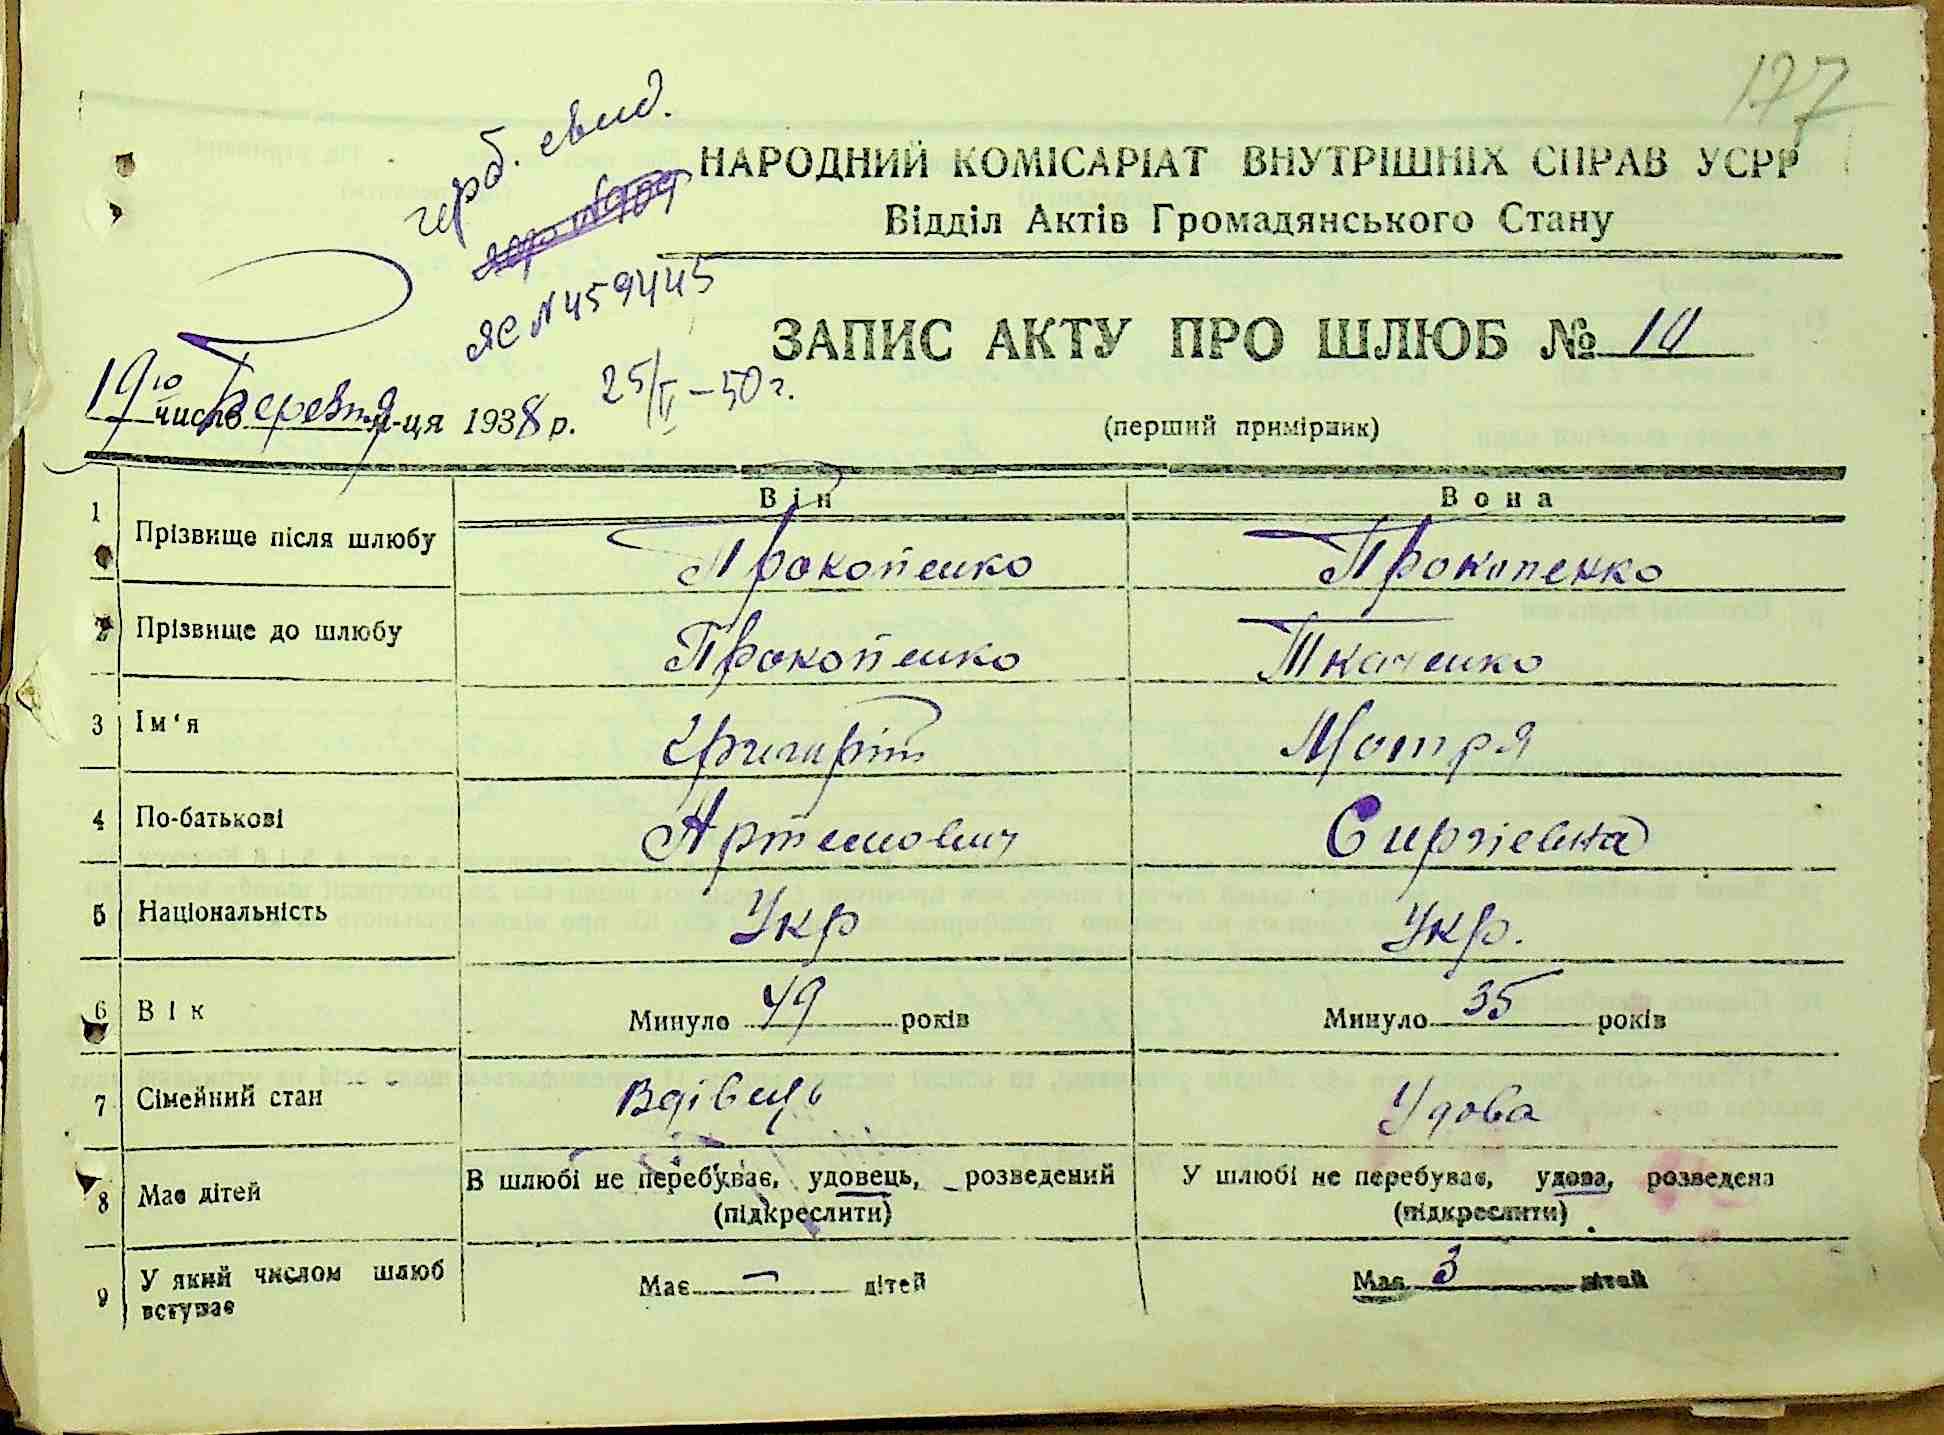 177
герб. свид.
НАРОДНИЙ КОМІСАРІАТ ВНУТРІШНІХ СПРАВ УСРР
Відділ Актів Громадянського Стану
ЯС N 459445
ЗАПИС АКТУ ПРО ШЛЮБ № 10
25/V-50 г.
19го число Березня м-ця 1938 р.
(перший примірник)
Він Вона
1 Прізвище після шлюбу Прокопенко Прокопенко
2 Прізвище до шлюбу Прокопенко Ткаченко
3 Ім'я Григоріт Мотря
4 По-батькові Артемович Сиргіевна
5 Національність Укр Укр.
6 Вік Минуло 49 років Минуло 35 років
7 Сімейний стан Вдівець Удова
8 Має дітей В шлюбі не перебуває, удовець, розведений У шлюбі не перебуває, удова, розведена
(підкреслити) (підкреслити)
9 У який числом шлюб Має — дітей Має 3 дітей
вступає